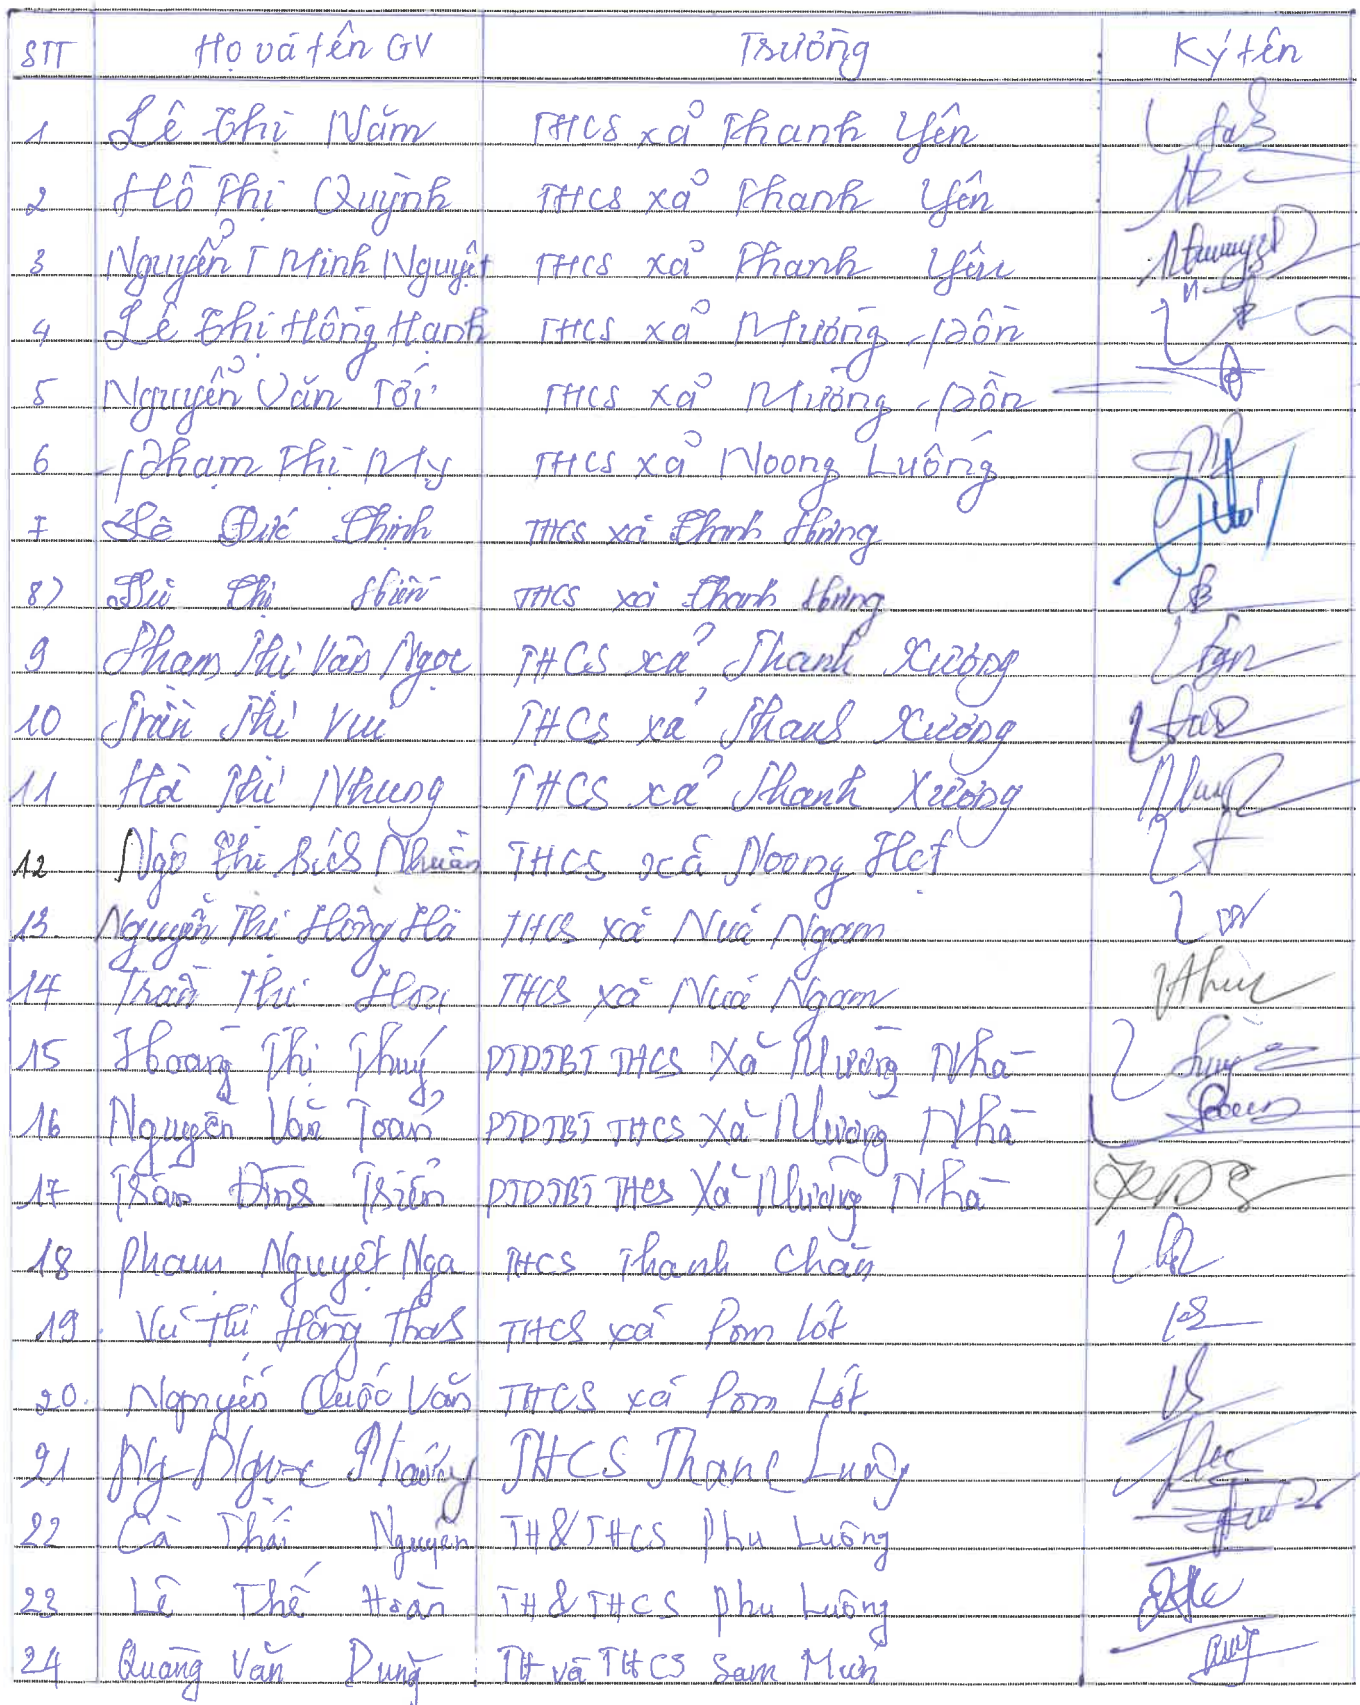 STT Họ và tên GV Trường Ký tên
1 Lê Thị Năm THCS xã Thanh Yên
2 Hồ Thị Quỳnh THCS xã Thanh Yên
3 Nguyễn T Minh Nguyệt THCS xã Thanh Yên
4 Lê Thị Hồng Hạnh THCS xã Mường Pồn
5 Nguyễn Văn Tới THCS xã Mường Pồn
6 Phạm Thị My THCS xã Noong Luống
7 Lê Đức Thịnh THCS xã Thanh Hưng
8) Thị Hiền THCS xã Thanh Hưng
9 Phạm Thị Vân Ngọc THCS xã Thanh Xương
10 Trần Thị Vui THCS xã Thanh Xương
11 Hà Thị Nhung THCS xã Thanh Xương
12 Ngô Thị Bích Nhuần THCS xã Noong Hẹt
13. Nguyễn Thị Hồng Hà THCS xã Nuá Ngam
14 Trần Thị THCS xã Nuá Ngam
15 Hoàng Thị Thuý PTDTBT THCS Xã Mường Nhà
16 Nguyễn Văn Toán PTDTBT THCS Xã Mường Nhà
17 Trần Đình Triển PTDTBT THCS Xã Mường Nhà
18 Phạm Nguyệt Nga THCS Thanh Chăn
19. Vũ Thị Hồng THCS xã Pom Lót
20. Nguyễn Quốc Văn THCS xã Pom Lót
21 Ng Ngọc Phương THCS Thanh Luông
22 Cà Thái Nguyên TH & THCS Phu Luông
23 Lê Thế Hoàn TH & THCS Phu Luông
24 Quàng Văn Dung TH và THCS Sam Mứn